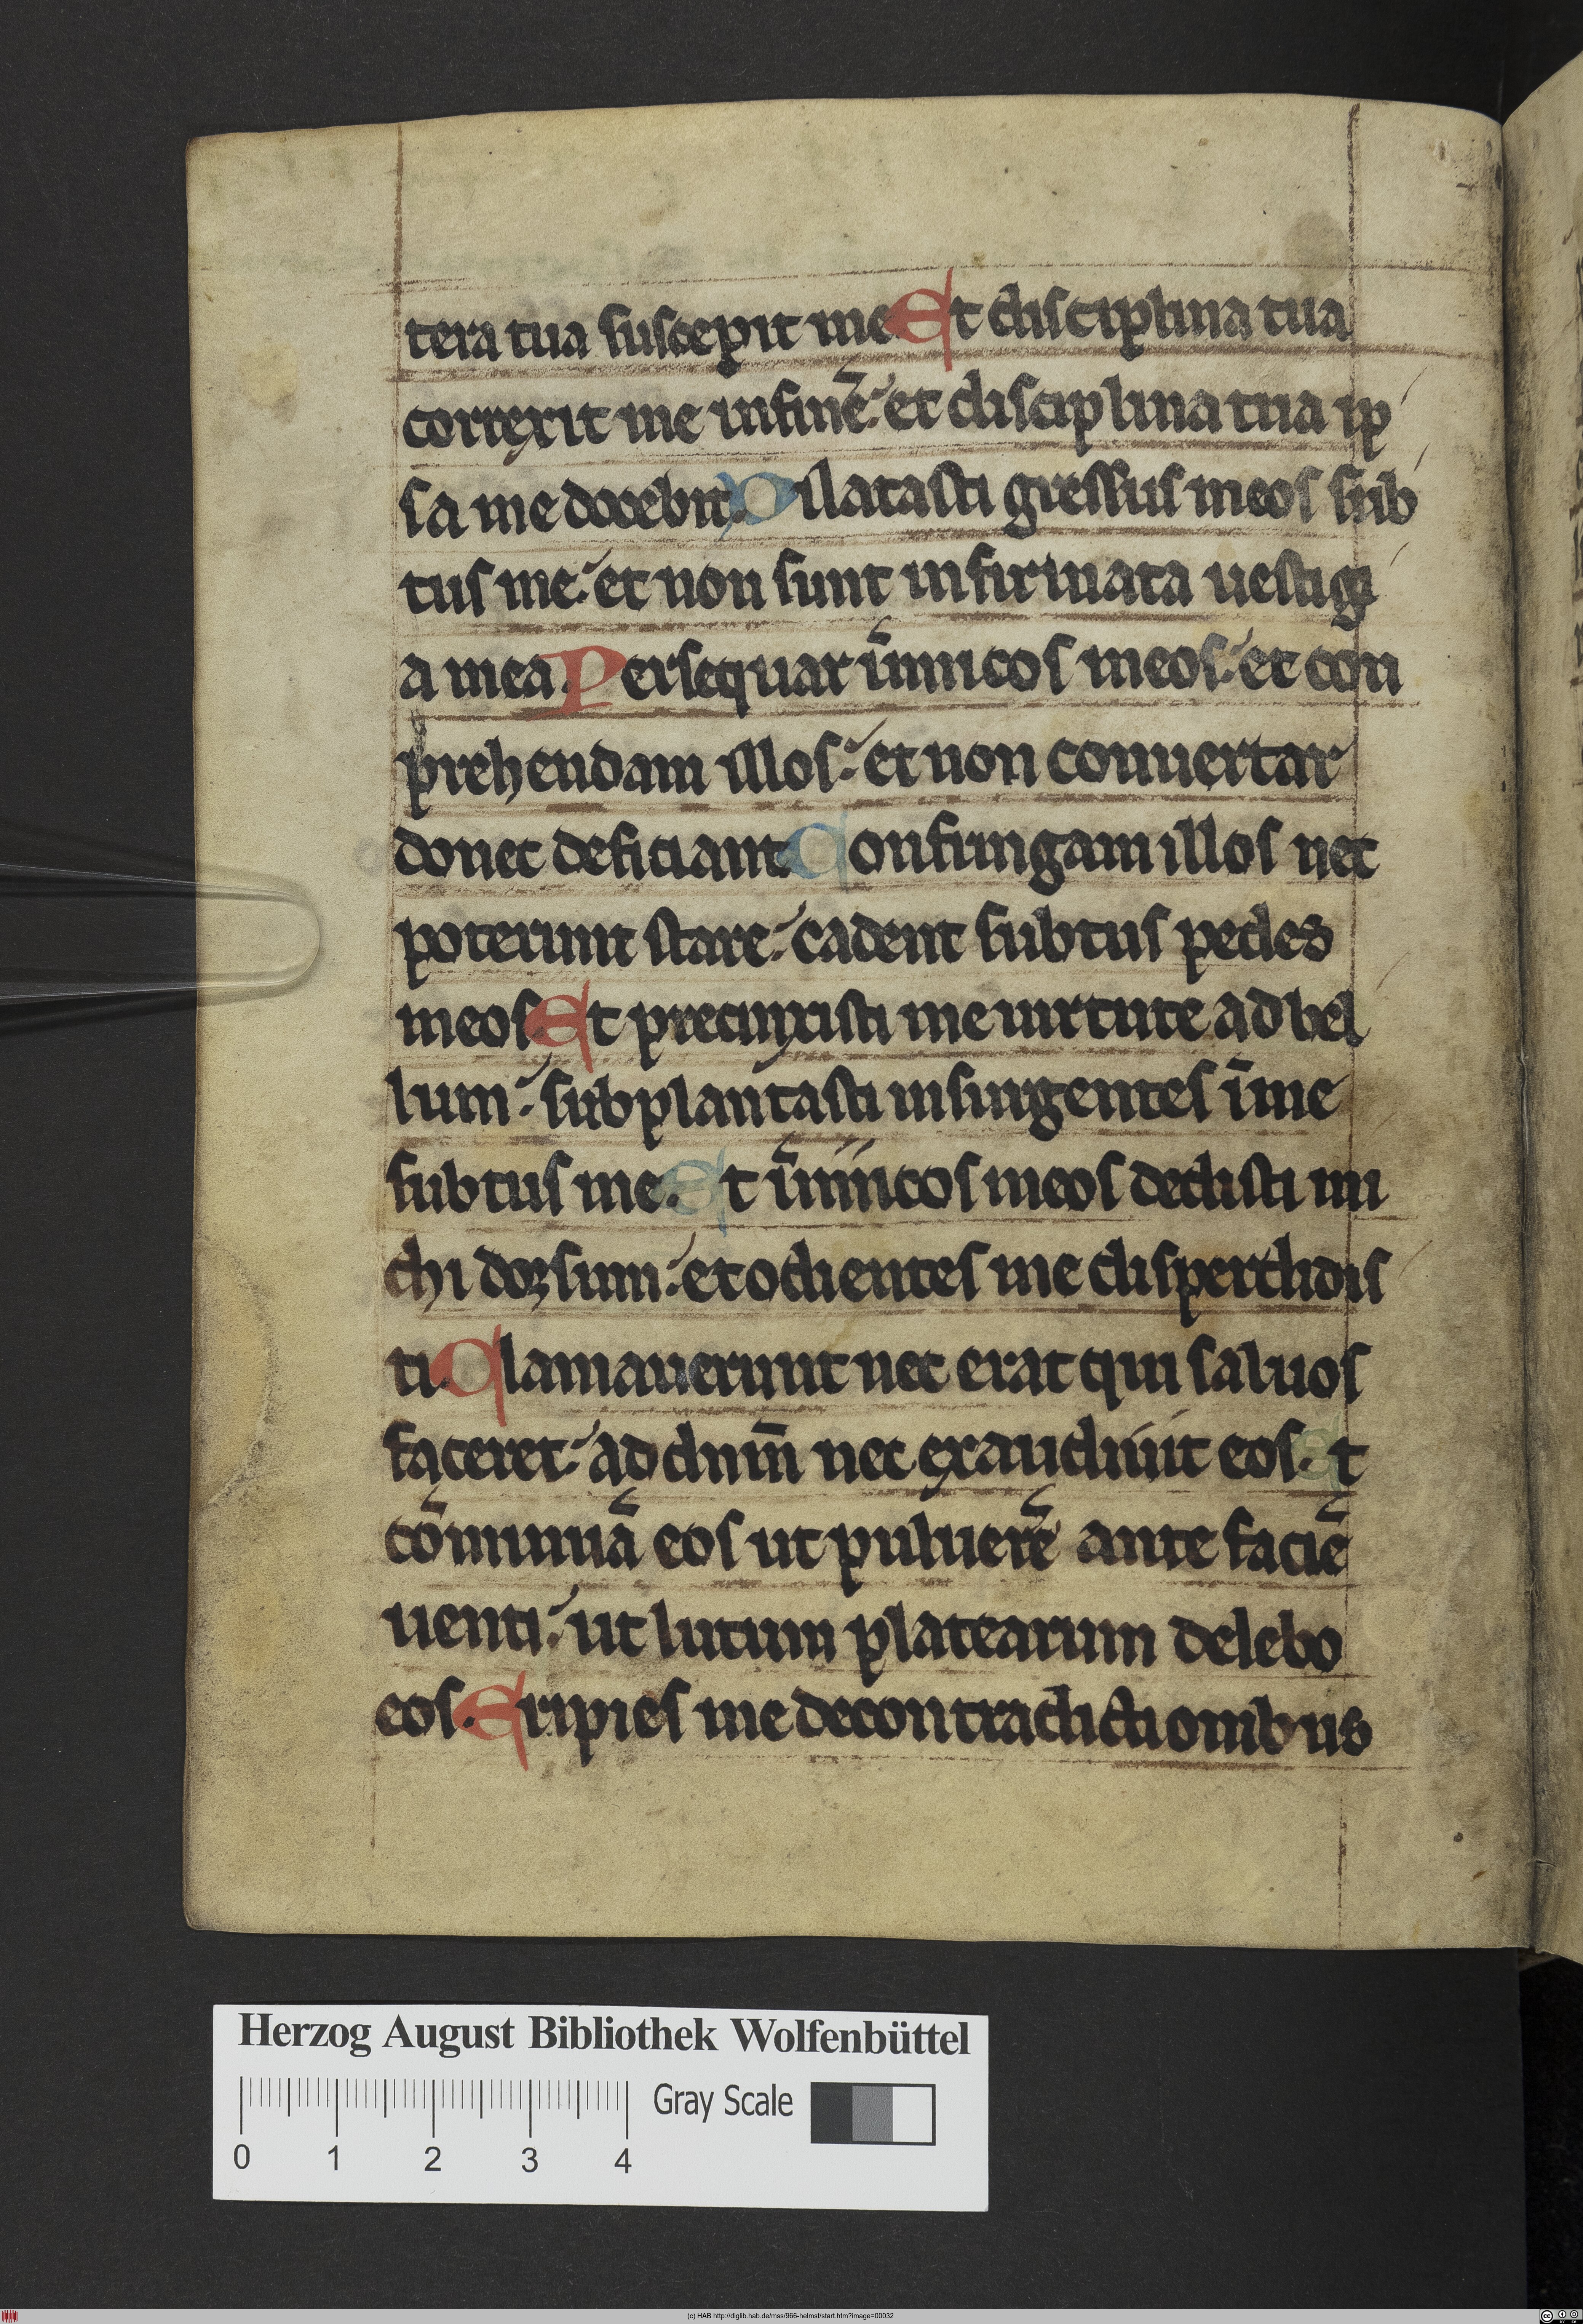 tera tua suscepit me Et disciplina tua
correxit me infinē. et disciplina tua ip
sa me docebit. Dilatasti gressus meos sub
tus me. et non sunt infirmata uestigi
a mea. Persequar īimicos meos. et con
prehendam illos. et non conuertar
donec deficiant. Confringam illos nec
poterunt stare. cadent subtus pedes
meos. Et precinxisti me uirtute ad bel
lum. subplantasti insurgentes īme
subtus me. Et īimicos meos dedisti mi
chi dorsum. et odientes me disperdidis
ti. Clamauerunt nec erat qui saluos
faceret. ad dnm̄ nec exaudiuit eos. Et
cōminuā eos ut puluerē ante faciē
uenti. ut lutum platearum delebo
eos. Eripies me decontradictionibus
Herzog August Bibliothek Wolfenbüttel
Gray Scale
0 1 2 3 4
(c) HAB http://diglib.hab.de/mss/966-helmst/start.htm?image=00032